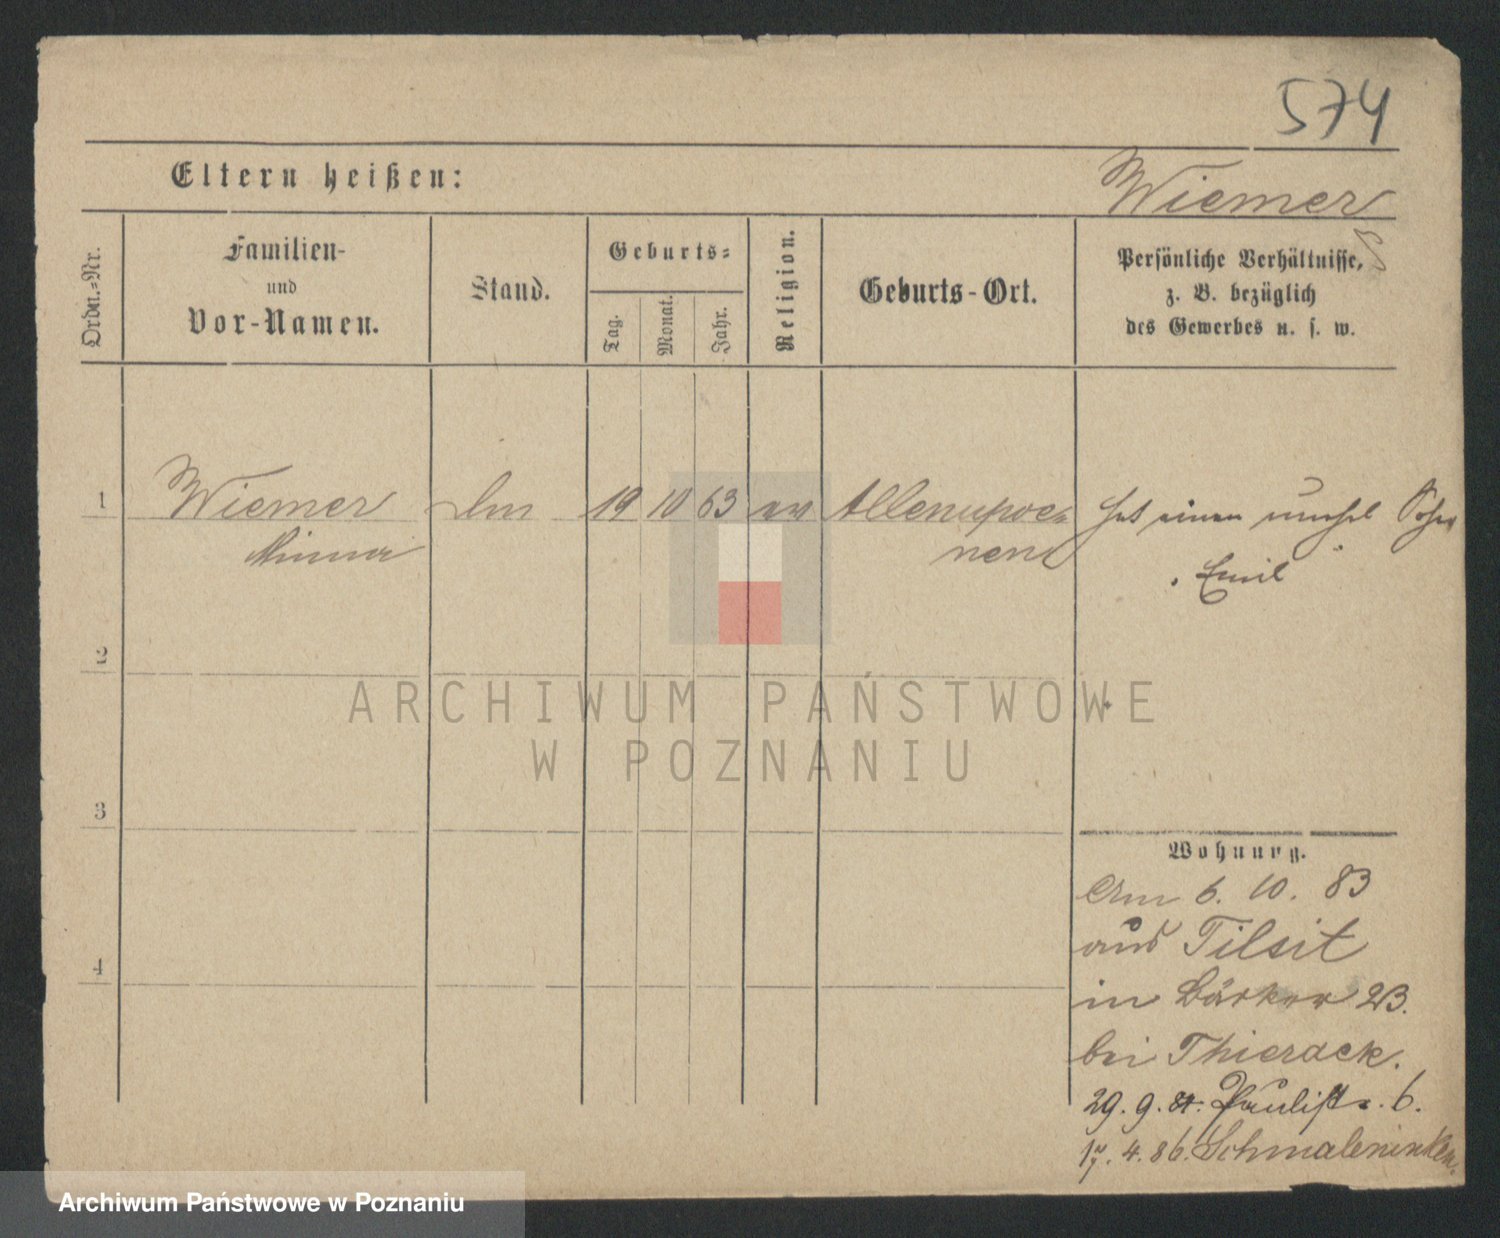 574
Eltern heißen:
Wiemer
Ordn.-Nr.
Familien-
und
Vor-Namen.
Stand.
Geburts-
Tag.
Monat.
Jahr.
Religion.
Geburts-Ort.
Persönliche Verhältnisse,
z. B. bezüglich
des Gewerbes u. s. w.
1 Wiemer 19 10 63 ev hat einen unehel Sohn
Minna nen
Emil
2
3
4
ARCHIWUM PAŃSTWOWE
W POZNANIU
Wohnung.
6. 10. 83
aus Tilsit
in 23.
bei Thierack.
29. 9. 84. Paulistr. 6.
17. 4. 86. Schmaleninken.
Archiwum Państwowe w Poznaniu